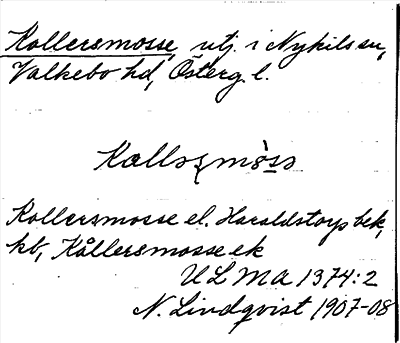 Kollersmosse, utj. i Nykils sn,
Valkebo hd, Österg. l.
Kollersmosse el. Haraldstorps bek,
kb, Kållersmosse ek
ULMA 1374:2
N. Lindqvist 1907-08